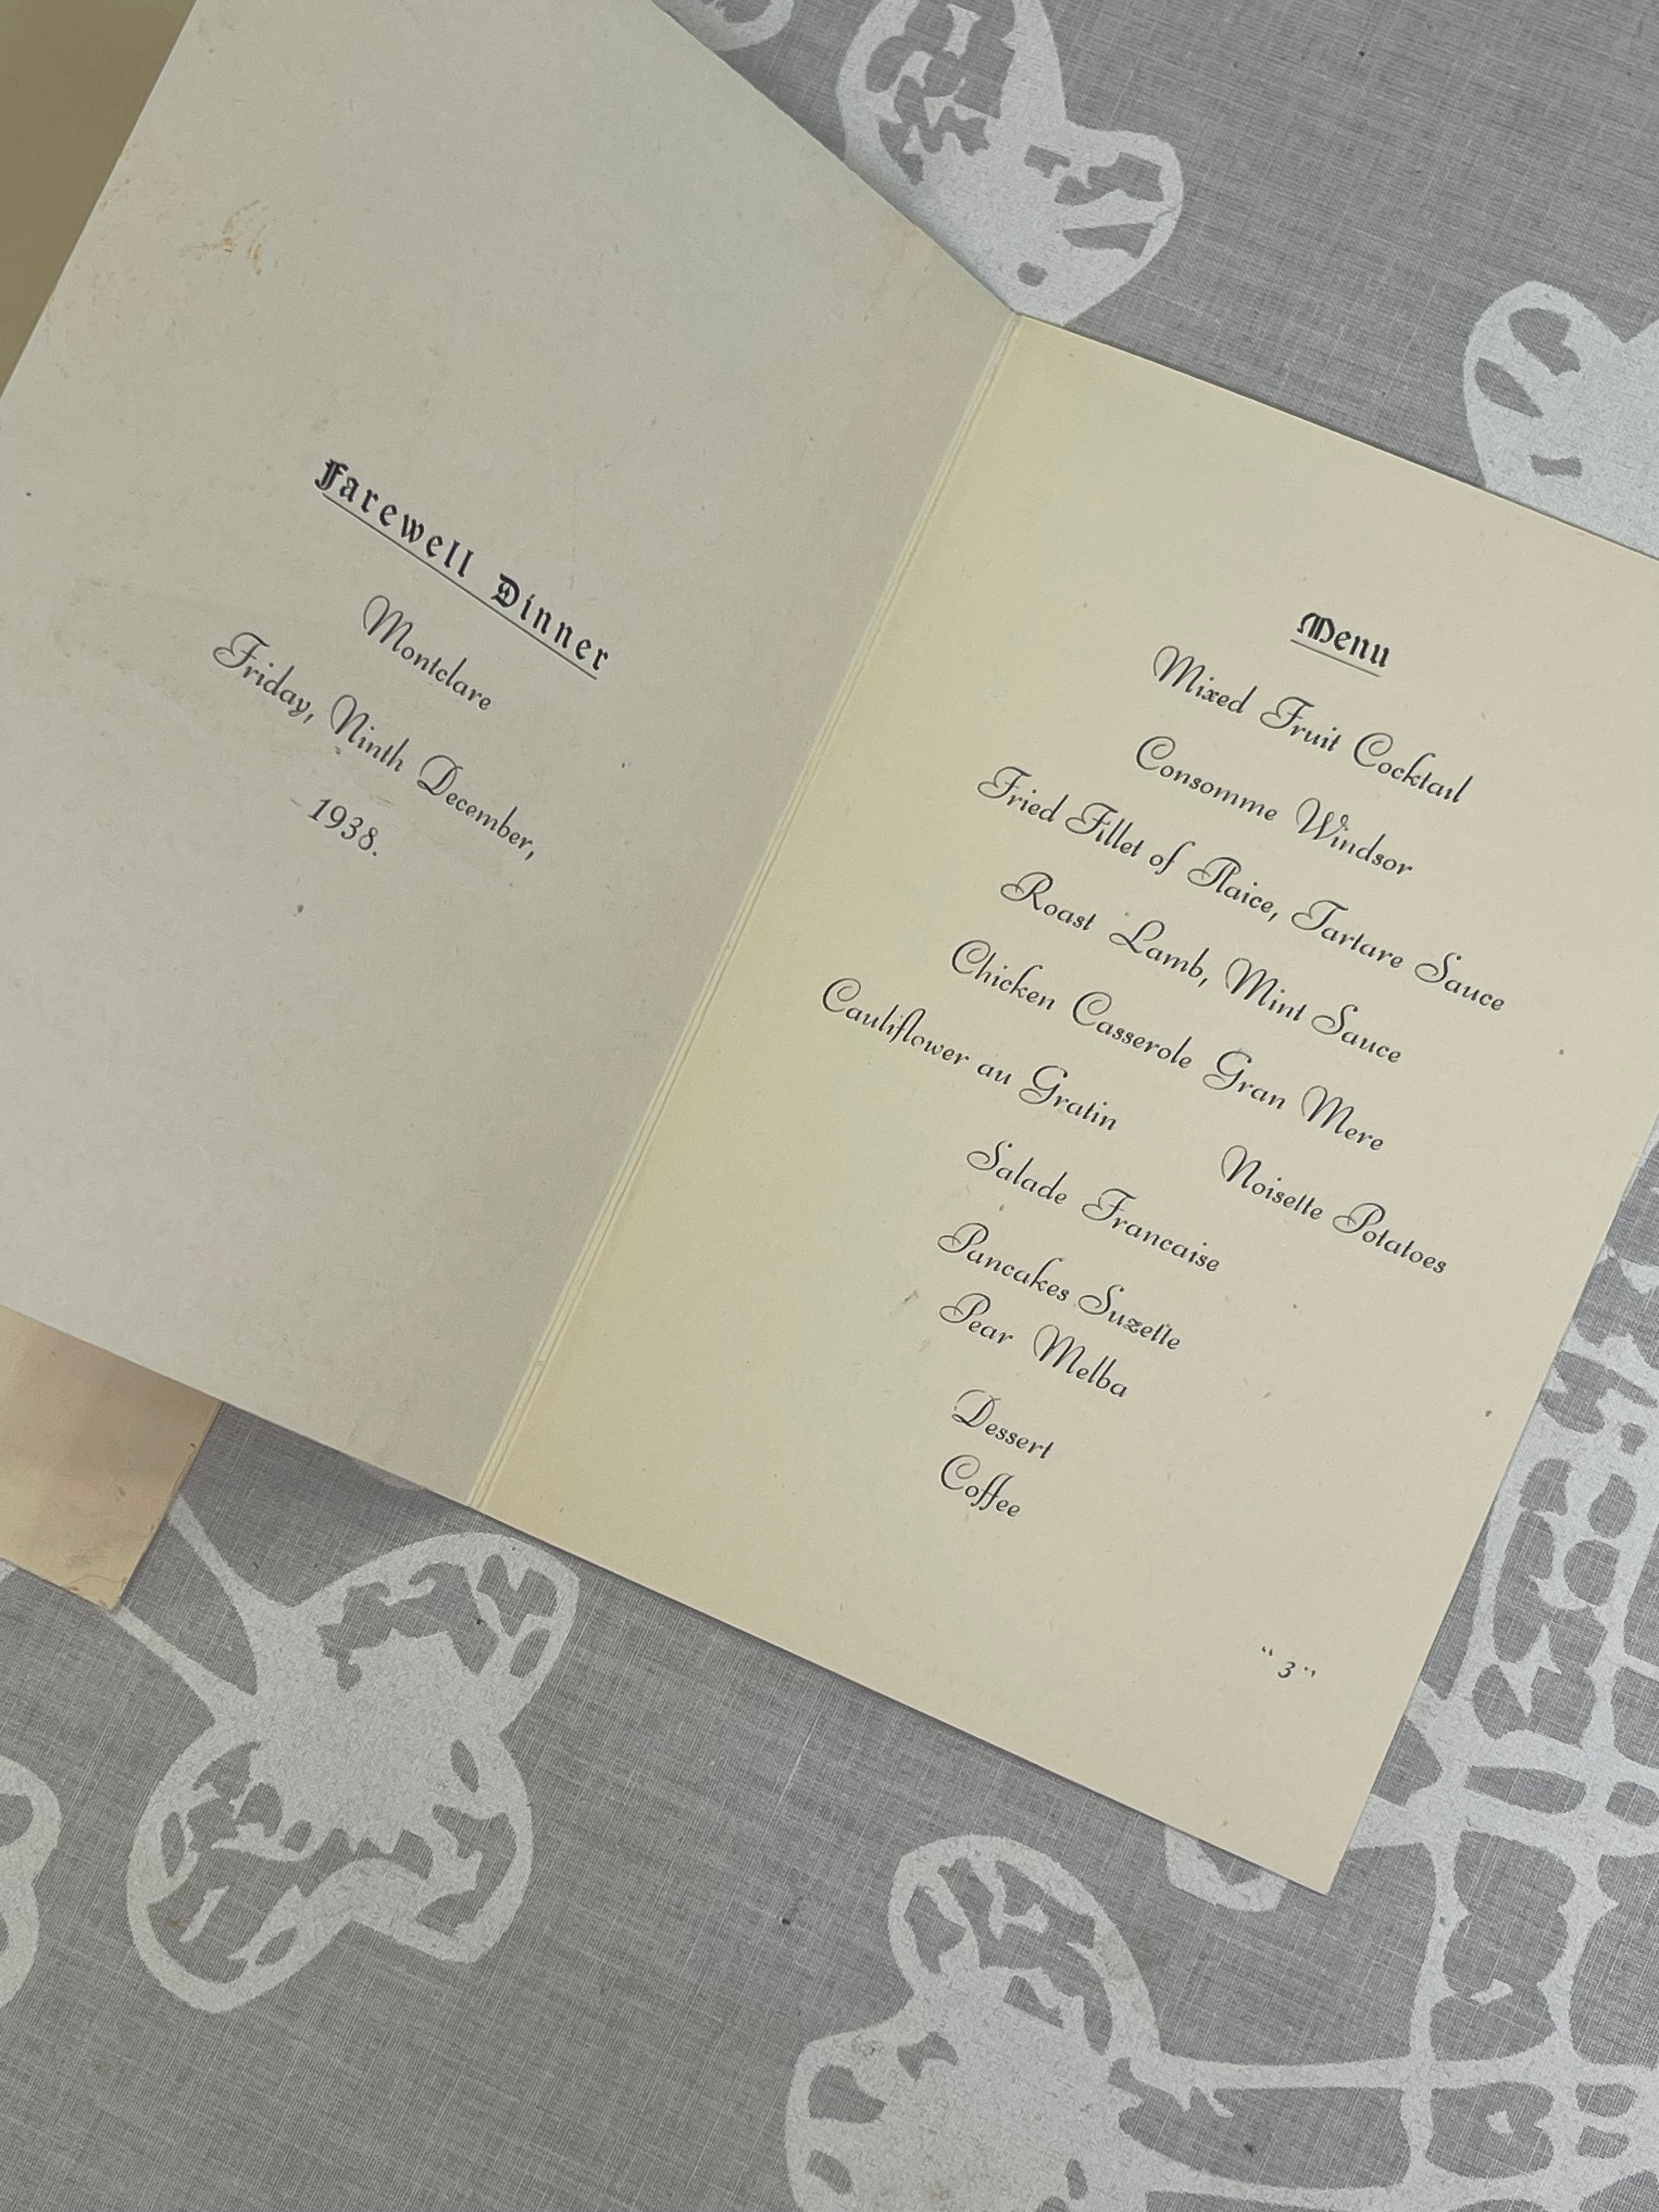 Farewell Dinner
Montclare
Friday, Ninth December,
1938.
Menu
Mixed Fruit Cocktail
Consomme Windsor
Fried Fillet of Plaice, Tartare Sauce
Roast Lamb, Mint Sauce
Chicken Casserole Gran Mere
Cauliflower au Gratin Noisette Potatoes
Salade Francaise
Pancakes Suzette
Pear Melba
Dessert
Coffee
"3"